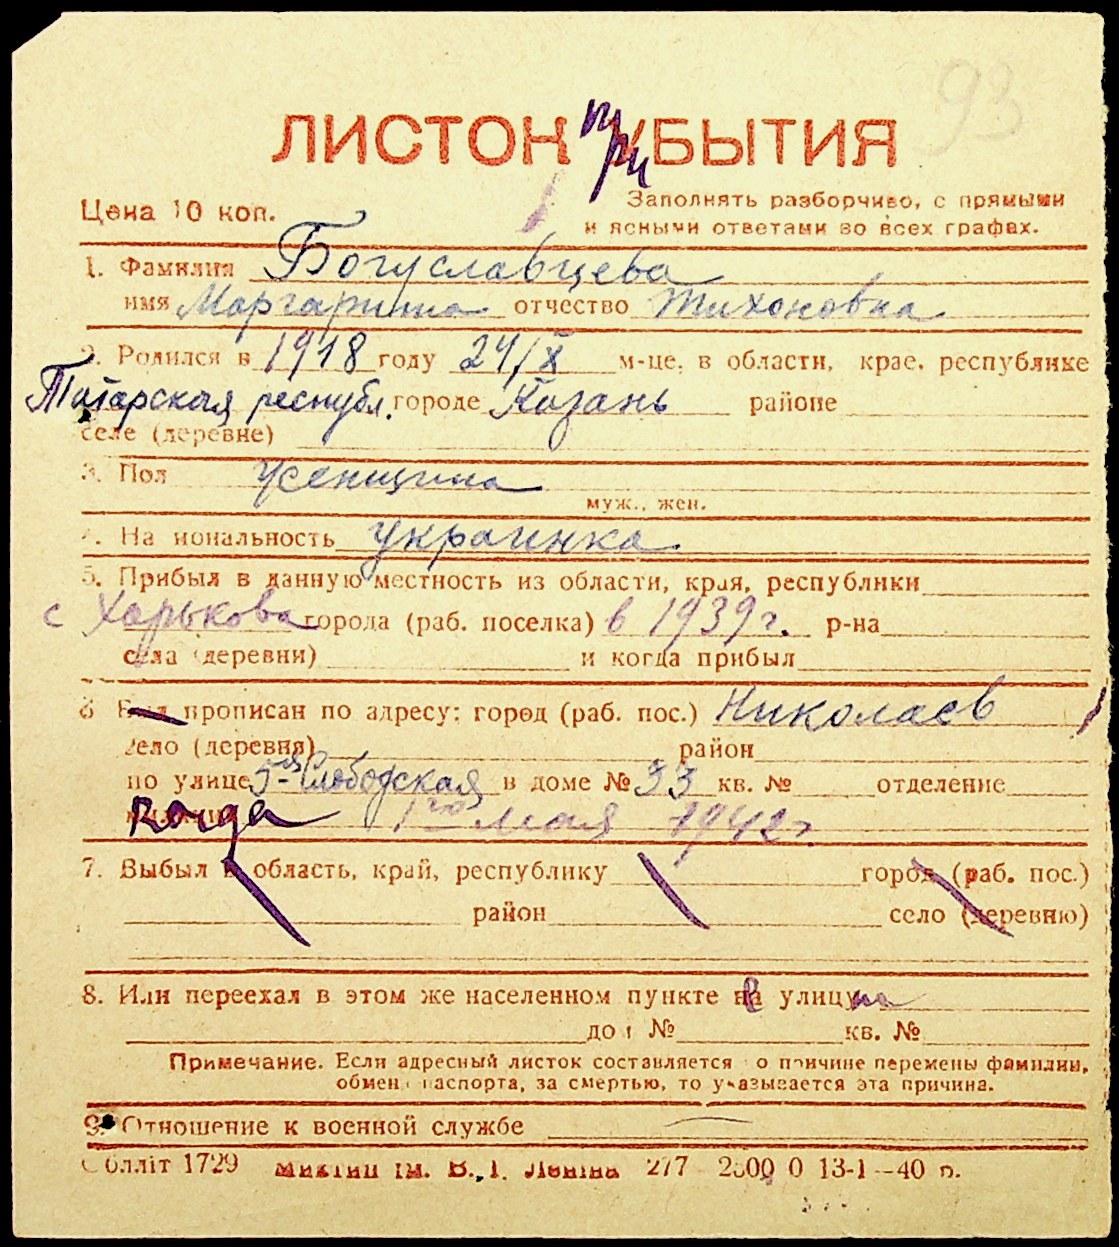 93
ЛИСТОН при УБЫТИЯ
Цена 10 коп.
Заполнять разборчиво, с прямыми
и ясными ответами во всех графах.
1. Фамилия Богуславцева
имя Маргарита отчество Тихоновна
2. Родился в 1918 году 24/X м-це, в области, крае, республике
Татарская республ. городе Казань районе
селе (деревне)
3. Пол женщина
муж., жен.
4. На иональность украинка
5. Прибыл в данную местность из области, края, республики
с Харькова города (раб. поселка) в 1939 г. р-на
села (деревни) и когда прибыл
6 Был прописан по адресу: город (раб. пос.) Николаев
село (деревня) район
по улице 5-я Слободская в доме № 33 кв. № отделение
когда 1го мая 1942 г.
7. Выбыл в область, край, республику город (раб. пос.)
район село (деревню)
8. Или переехал в этом же населенном пункте на улицу
дом № кв. №
Примечание. Если адресный листок составляется по причине перемены фамилии,
обмена паспорта, за смертью, то указывается эта причина.
9. Отношение к военной службе
Облліт 1729 ім. В. І. Леніна 277 13-1-40 р.